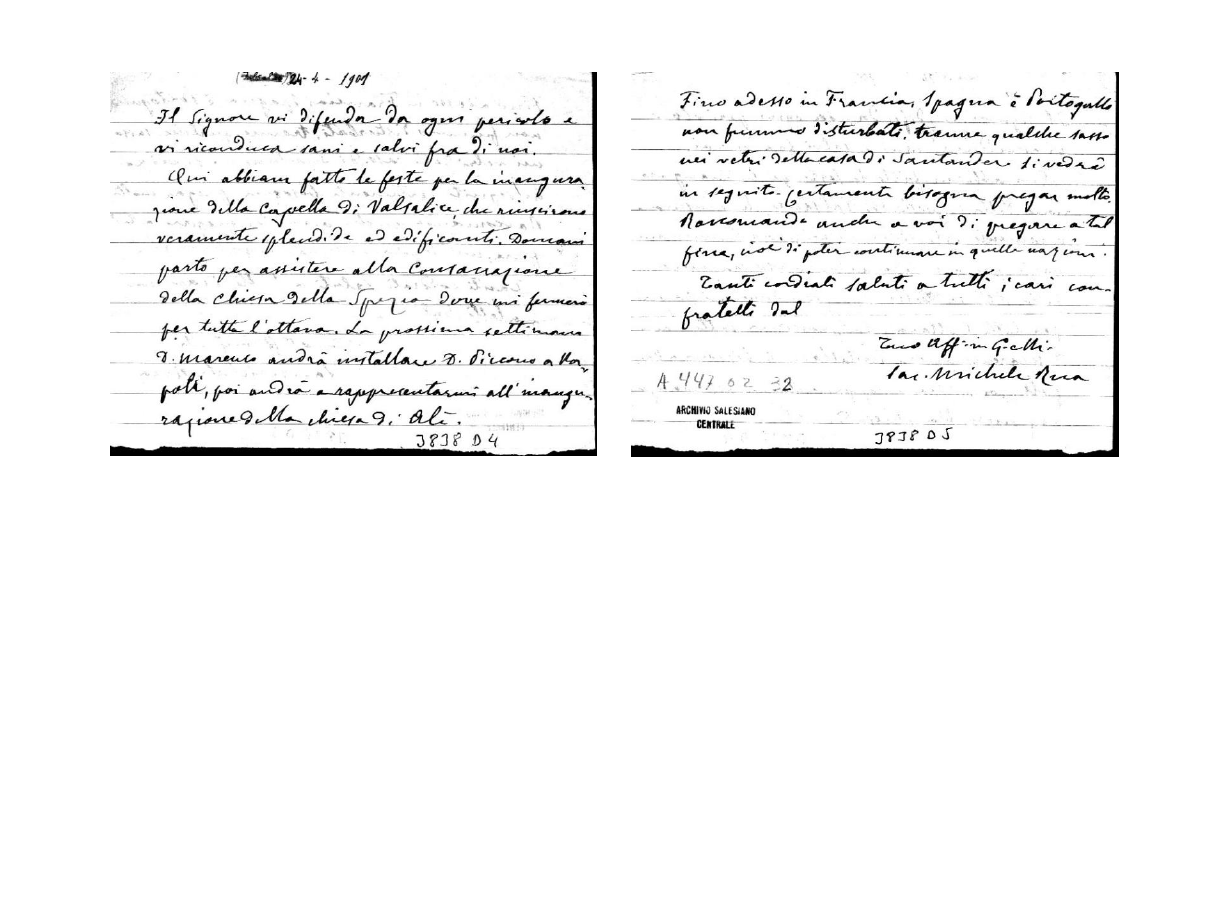 24-4-1901
Il Signore vi difenda da ogni pericolo e
vi riconduca sani e salvi fra di noi.
Qui abbiam fatto le feste per la inaugura-
zione della Capella di Valsalice, che riuscirono
veramente splendide ed edificanti. Domani
parto per assistere alla Consacrazione
della chiesa della Spezia dove mi fermerò
per tutta l'ottava. La prossima settimana
D. Marenco andrà installare D. Piccono a Na-
poli, poi andrà a rappresentarmi all'inaugu-
razione della chiesa di Alì.
3838 D4
Fino adesso in Francia, Spagna e Portogallo
non fummo disturbati, tranne qualche sasso
nei vetri della casa di Santander. Si vedrà
in seguito. Certamente bisogna pregar molto.
Raccomando anche a voi di pregare a tal
fine, cioè di poter continuare in quelle nazioni.
Tanti cordiali saluti a tutti i cari con-
fratelli dal
Tuo Aff. in G. e M.
Sac. Michele Rua
A 447 02 32
ARCHIVIO SALESIANO
CENTRALE
3838 D5